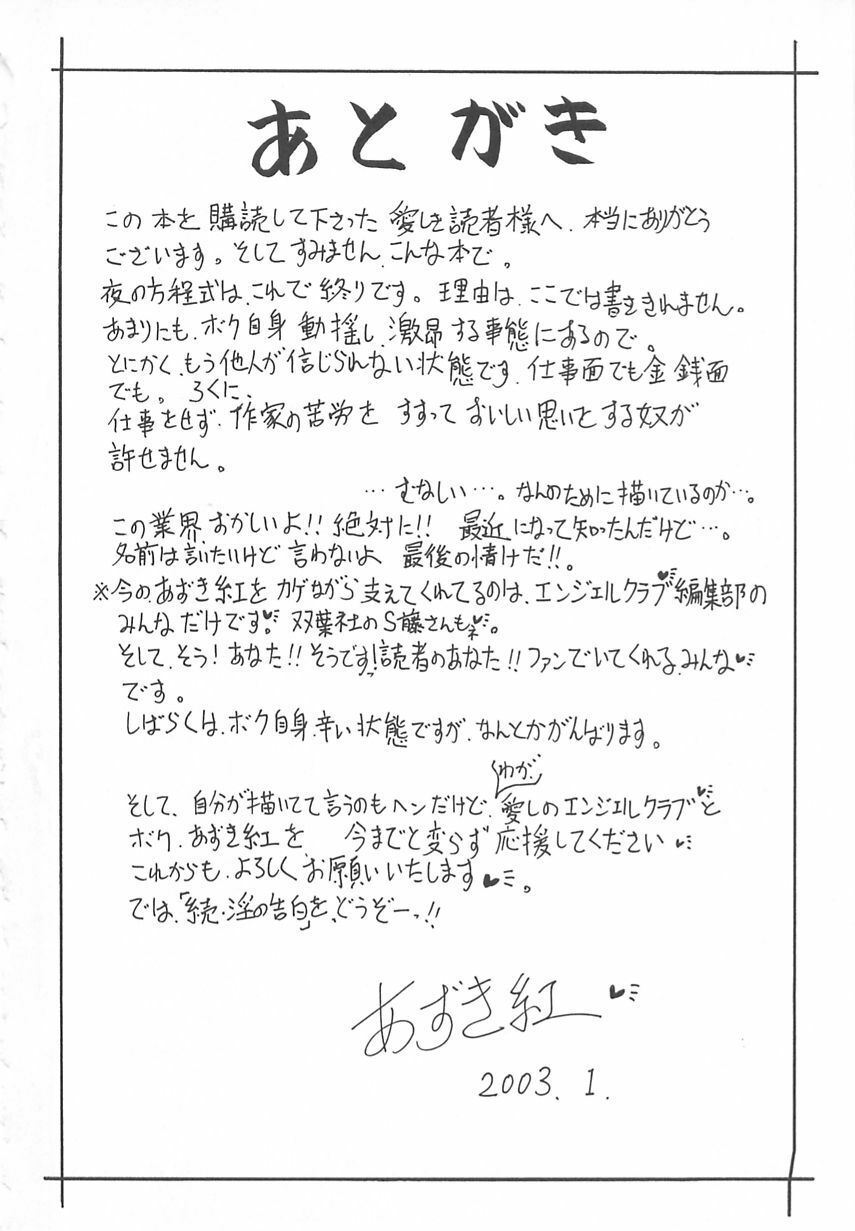 あとがき
この本を購読して下さった愛しき読者様へ、本当にありがとう
ございます。そしてすみません、こんな本で。
夜の方程式は、これで終りです。理由は、ここでは書ききれません。
あまりにも、ボク自身動揺し、激昂する事態にあるので。
とにかく、もう他人が信じられない状態です、仕事面でも金銭面
でも。ろくに、
仕事をせず、作家の苦労をすすっておいしい思いとする奴が
許せません。
…むなしい…。なんのために描いているのか…。
この業界、おかしいよ!!絶対に!!最近になって知ったんだけど…。
名前は言いたいけど言わないよ 最後の情けだ!!。
※今の、あずき紅をカゲながら支えてくれてるのは、エンジェルクラブ♥編集部の
みんなだけです♥。双葉社のS藤さんもネ♥。
そして、そう!あなた!!そうです!読者のあなた!!ファンでいてくれる、みんな♥
です。
しばらくは、ボク自身、辛い状態ですが、なんとかがんばります。
わが、
そして、自分が描いてて言うのもヘンだけど、愛しのエンジェルクラブ♥と
ボク、あずき紅を、今までと変らず応援してください♥
これからも、よろしくお願いいたします♥。
では、「続・淫の告白」を、どうぞーっ!!
あずき紅♥
2003.1.